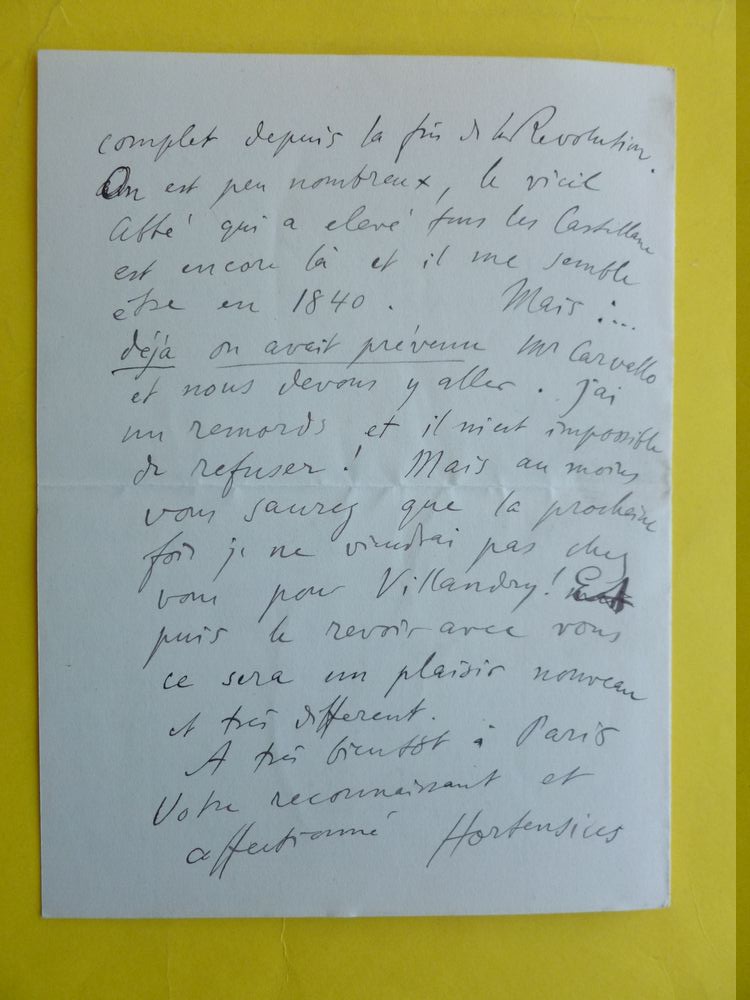 complet depuis la fin de la Revolution.
On est peu nombreux, le vieil
Abbé qui a elevé tous les Castellane
est encore là et il me semble
être en 1840. Mais :...
déjà on avait prévenu Mr Carvallo
et nous devons y aller. J'ai
un remords et il m'est impossible
de refuser ! Mais au moins
vous saurez que la prochaine
fois je ne viendrai pas chez
vous pour Villandry ! Et
puis le revoir avec vous
ce sera un plaisir nouveau
et très different.
A très bientôt à Paris
Votre reconnaissant et
affectionné Hortensius